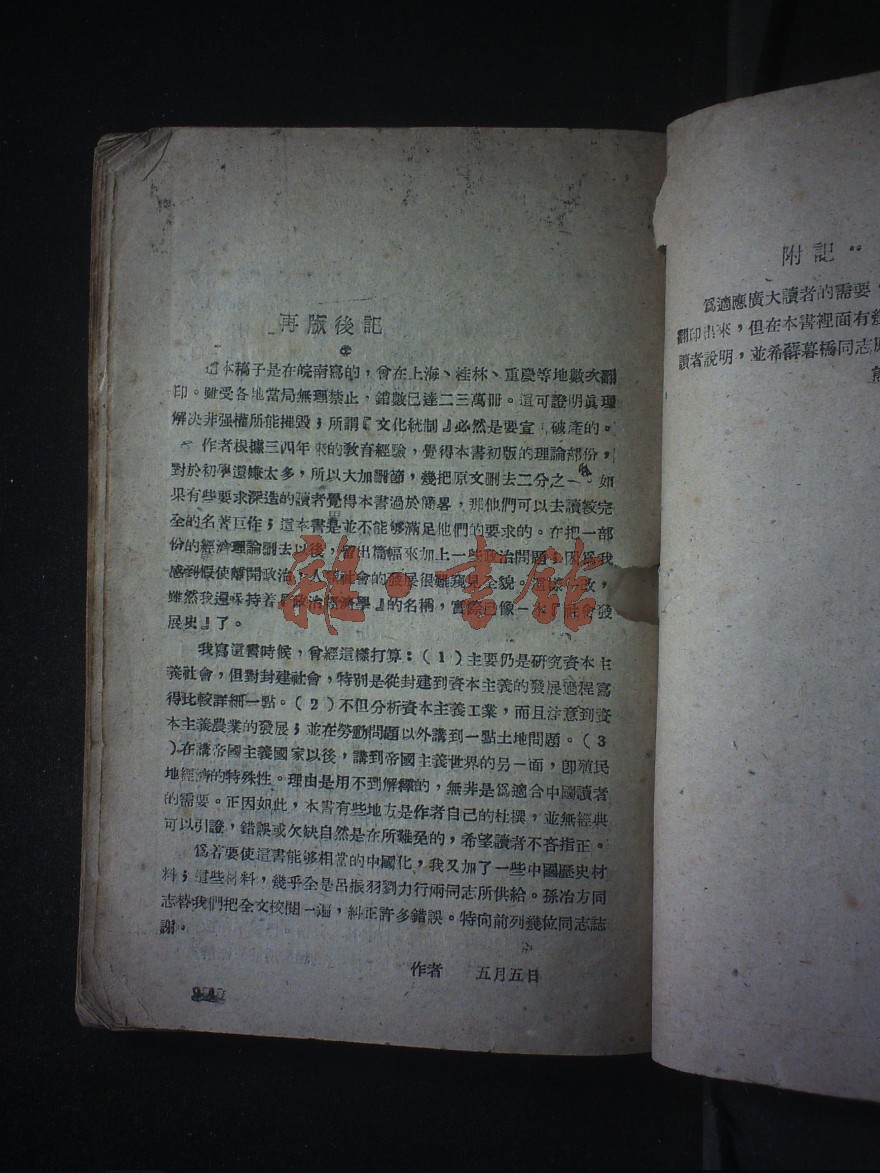 再版後記
這本稿子是在皖南寫的，曾在上海、桂林、重慶等地數次翻
印。雖受各地當局無理禁止，銷數已達二三萬冊。這可證明眞理
解决非强權所能摧毀；所謂『文化統制』必然是要宣 破產的。
作者根據三四年來的敎育經驗，覺得本書初版的理論部份，
對於初學還嫌太多，所以大加刪節，幾把原文刪去二分之一。如
果有些要求深造的讀者覺得本書過於簡畧，那他們可以去讀較完
全的名著巨作；這本書是並不能够滿足他們的要求的。在把一部
份的經濟理論刪去以後，留出篇幅來加上一些政治問題。因爲我
感到假使離開政治，人類社會的發展很難窺見全貌。這際一改，
雖然我還保持着『政治經濟學』的名稱，實際已像一本『社會發
展史』了。
我寫這書時候，曾經這樣打算：（1）主要仍是研究資本主
義社會，但對封建社會，特別是從封建到資本主義的發展過程寫
得比較詳細一點。（2）不但分析資本主義工業，而且注意到資
本主義農業的發展；並在勞動問題以外講到一點土地問題。（3
）在講帝國主義國家以後，講到帝國主義世界的另一面，卽殖民
地經濟的特殊性。理由是用不到解釋的，無非是爲適合中國讀者
的需要。正因如此，本書有些地方是作者自己的杜撰，並無經典
可以引證，錯誤或欠缺自然是在所難免的，希望讀者不吝指正。
爲若要使這書能够相當的中國化，我又加了一些中國歷史材
料；這些材料，幾乎全是呂振羽劉力行兩同志所供給。孫冶方同
志替我們把全文校閱一遍，糾正許多錯誤。特向前列幾位同志誌
謝。
作者 五月五日
附記
爲適應廣大讀者的需要，
翻印出來，但在本書裡面有
讀者說明，並希薛暮橋同志
雜·書館